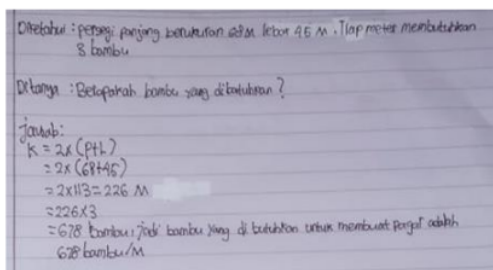 Diketahui : persegi panjang berukuran 68 M lebar 45 M. Tiap meter membutuhkan
3 bambu
Ditanya : Berapakah bambu yang dibutuhkan ?
jawab:
K = 2x (P+L)
= 2x (68+45)
= 2x113 = 226 M
= 226x3
= 678 bambu : jadi bambu yang di butuhkan untuk membuat pagar adalah
678 bambu/M